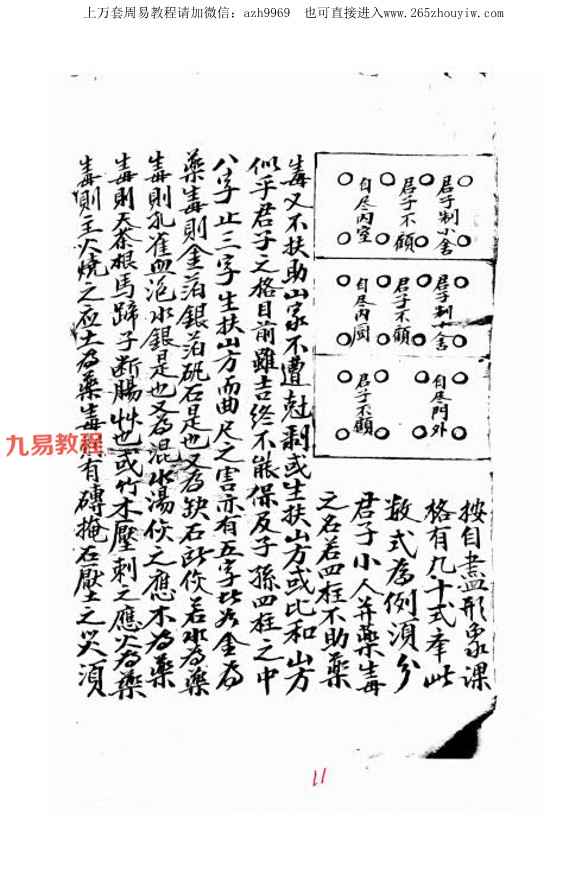 上万套周易教程请加微信：azh9969　也可直接进入www.265zhouyiw.com
君子制小舍
君子不顧
自尽内室
君子制小舍
君子不顧
自尽内厨
自尽門外
君子不顧
按自盡形象课
格有九十式奉此
数式為例須分
君子小人并藥毒
之名若四柱不助藥
毒又不扶助山家不遭尅剥或生扶山方或比和山方
似乎君子之格目前雖吉终不能保及子孫四柱之中
八字止三字生扶山方而曲尺之害亦有五字比为金為
藥毒則金箔銀箔砒石是也又為缺石所伩若水為藥
毒則孔雀血泡水銀是也又為混水湯伩之應木為藥
毒則天茶根馬蹄子断腸艸也或竹木壓刺之應火為藥
毒則主火燒之应土為藥毒有磚掩石壓土之災須
九易教程
11